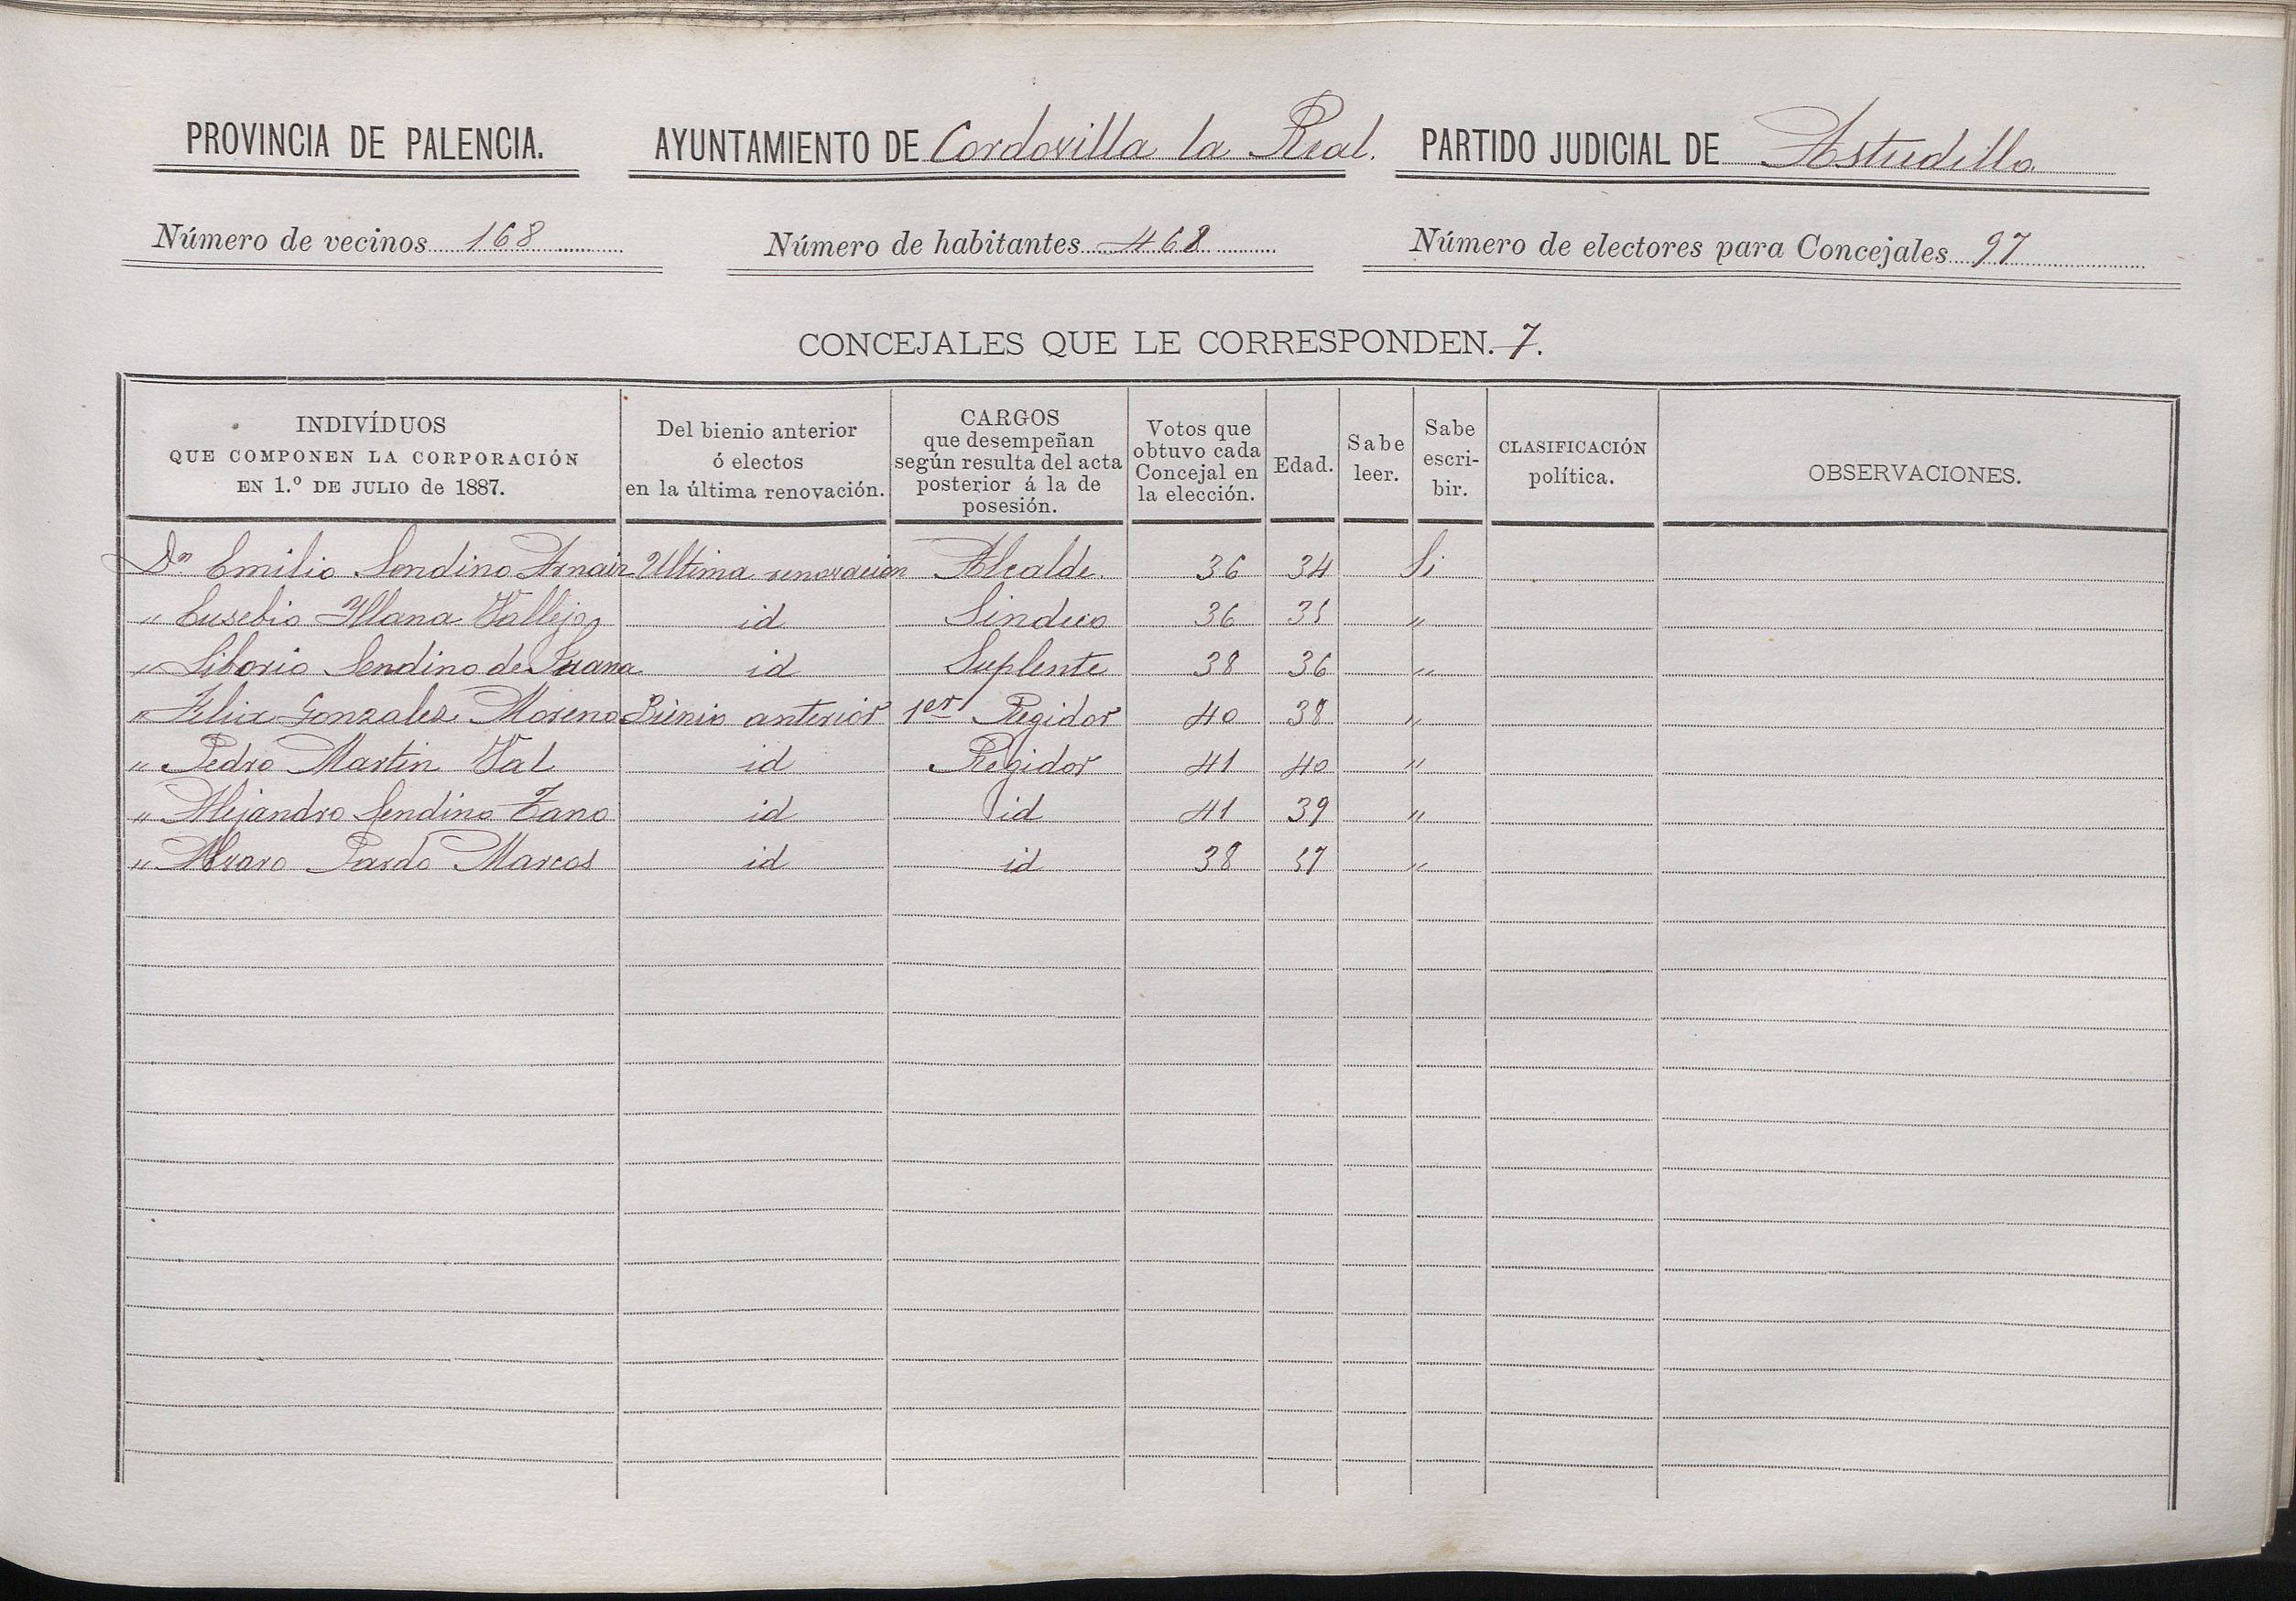 PROVINCIA DE PALENCIA. AYUNTAMIENTO DE Cordovilla la Real. PARTIDO JUDICIAL DE Astudillo
Número de vecinos 168 Número de habitantes 468 Número de electores para Concejales 97
CONCEJALES QUE LE CORRESPONDEN. 7.
INDIVÍDUOS
QUE COMPONEN LA CORPORACIÓN
EN 1.º DE JULIO de 1887.
Del bienio anterior
ó electos
en la última renovación.
CARGOS
que desempeñan
según resulta del acta
posterior á la de
posesión.
Votos que
obtuvo cada
Concejal en
la elección.
Edad.
Sabe
leer.
Sabe
escri-
bir.
CLASIFICACIÓN
política.
OBSERVACIONES.
Dn Emilio Sendino Arnaiz Ultima renovacion Alcalde. 36 34 Si
" Eusebio Yllana Vallejo id Sindico 36 35 "
" Liborio Sendino de id Suplente 38 36 "
" Felix Gonzalez Moreno Bienio anterior 1er Regidor 40 38 "
" Pedro Martin Val id Regidor 41 40 "
" Alejandro Sendino id id 41 39 "
" Alvaro Pardo Marcos id id 38 37 "